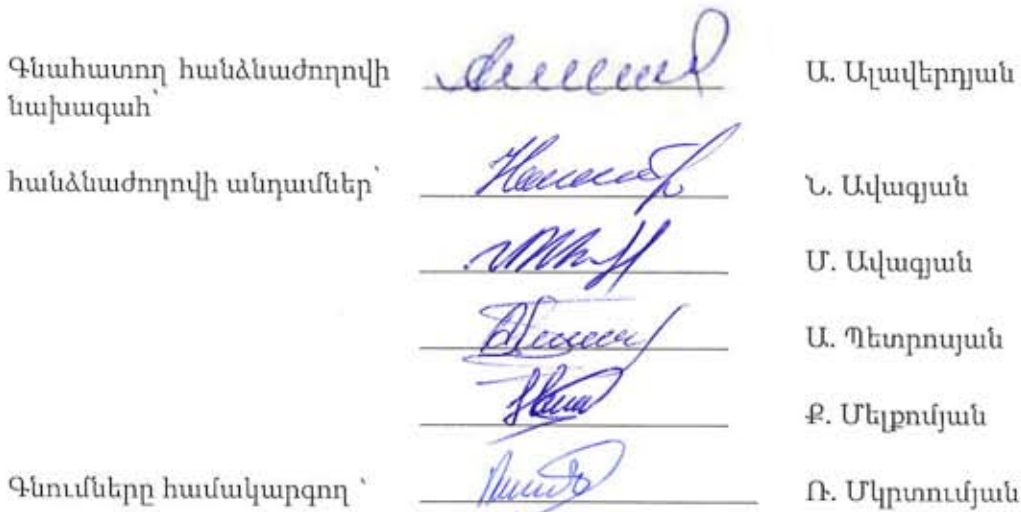 Գնահատող հանձնաժողովի
նախագահ՝ Ա. Ալավերդյան
հանձնաժողովի անդամներ՝ Ն. Ավագյան
Մ. Ավագյան
Ա. Պետրոսյան
Ք. Մելքումյան
Գնումները համակարգող ՝ Ռ. Մկրտումյան